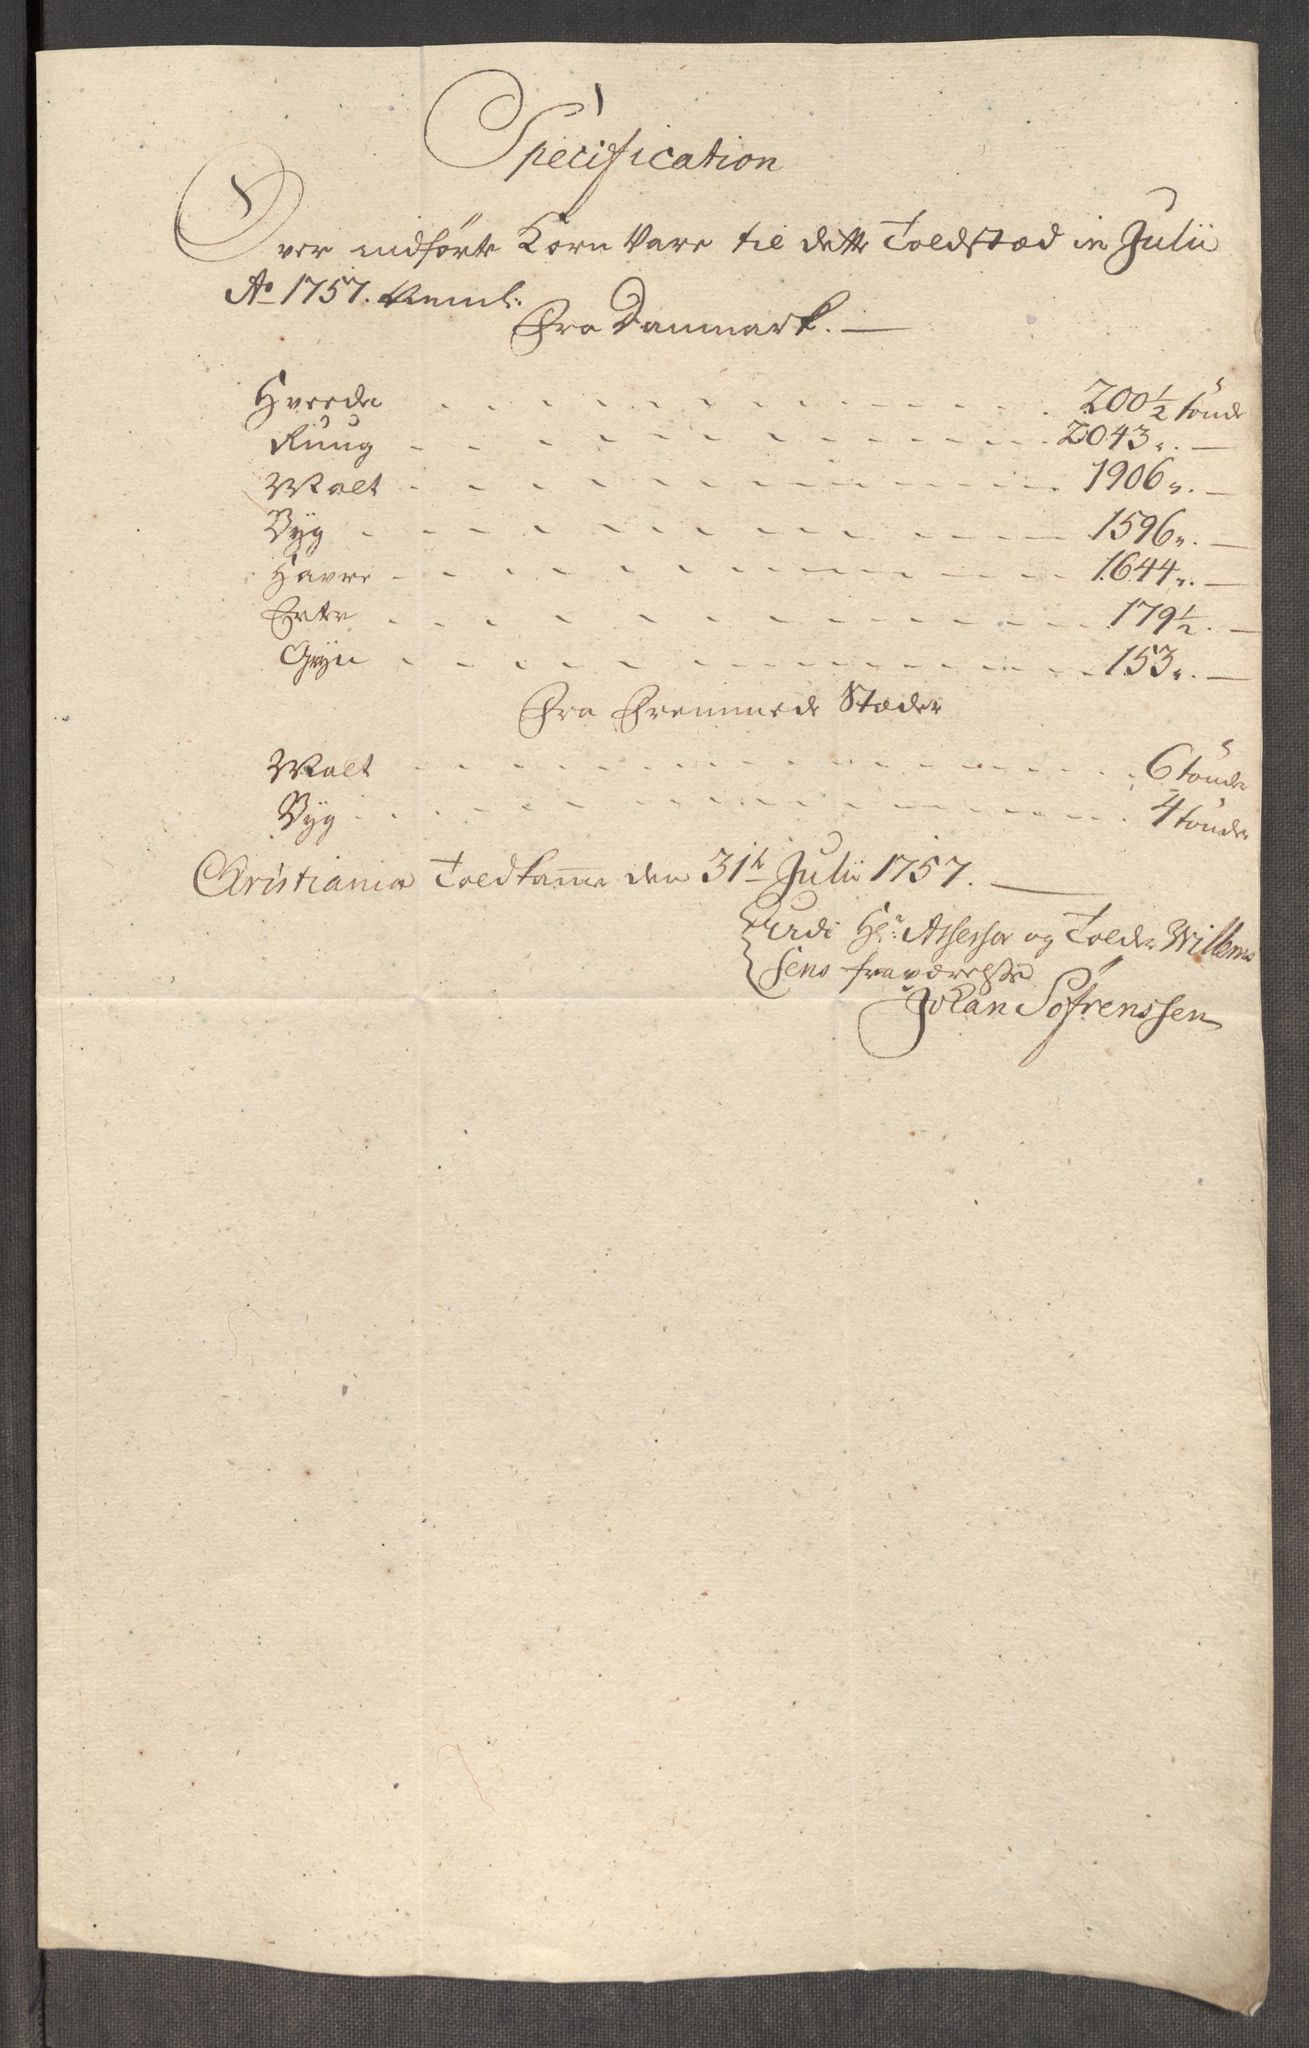 Specification
Over indførte Korn Vare til dette Toldstæd in Julii
Ao 1757. Neml:
Fra Danmark. —
Hveede . . . 200½ tönde
Ruug . . . 2043„. —
Malt . . . 1906„. —
Byg . . . 1596„. —
Havre . . . 1644„. —
Erter . . . 179½. —
Gryn . . . 153„. —
Fra Fremmede Stæder
Malt . . . 6 tönder
Byg . . . 4 tönder
Christiania Toldkamer den 31te Julii 1757. —
Udi Hr: Assessor og Tolder Willem
sens fraværelse
Johan Söfrenssen